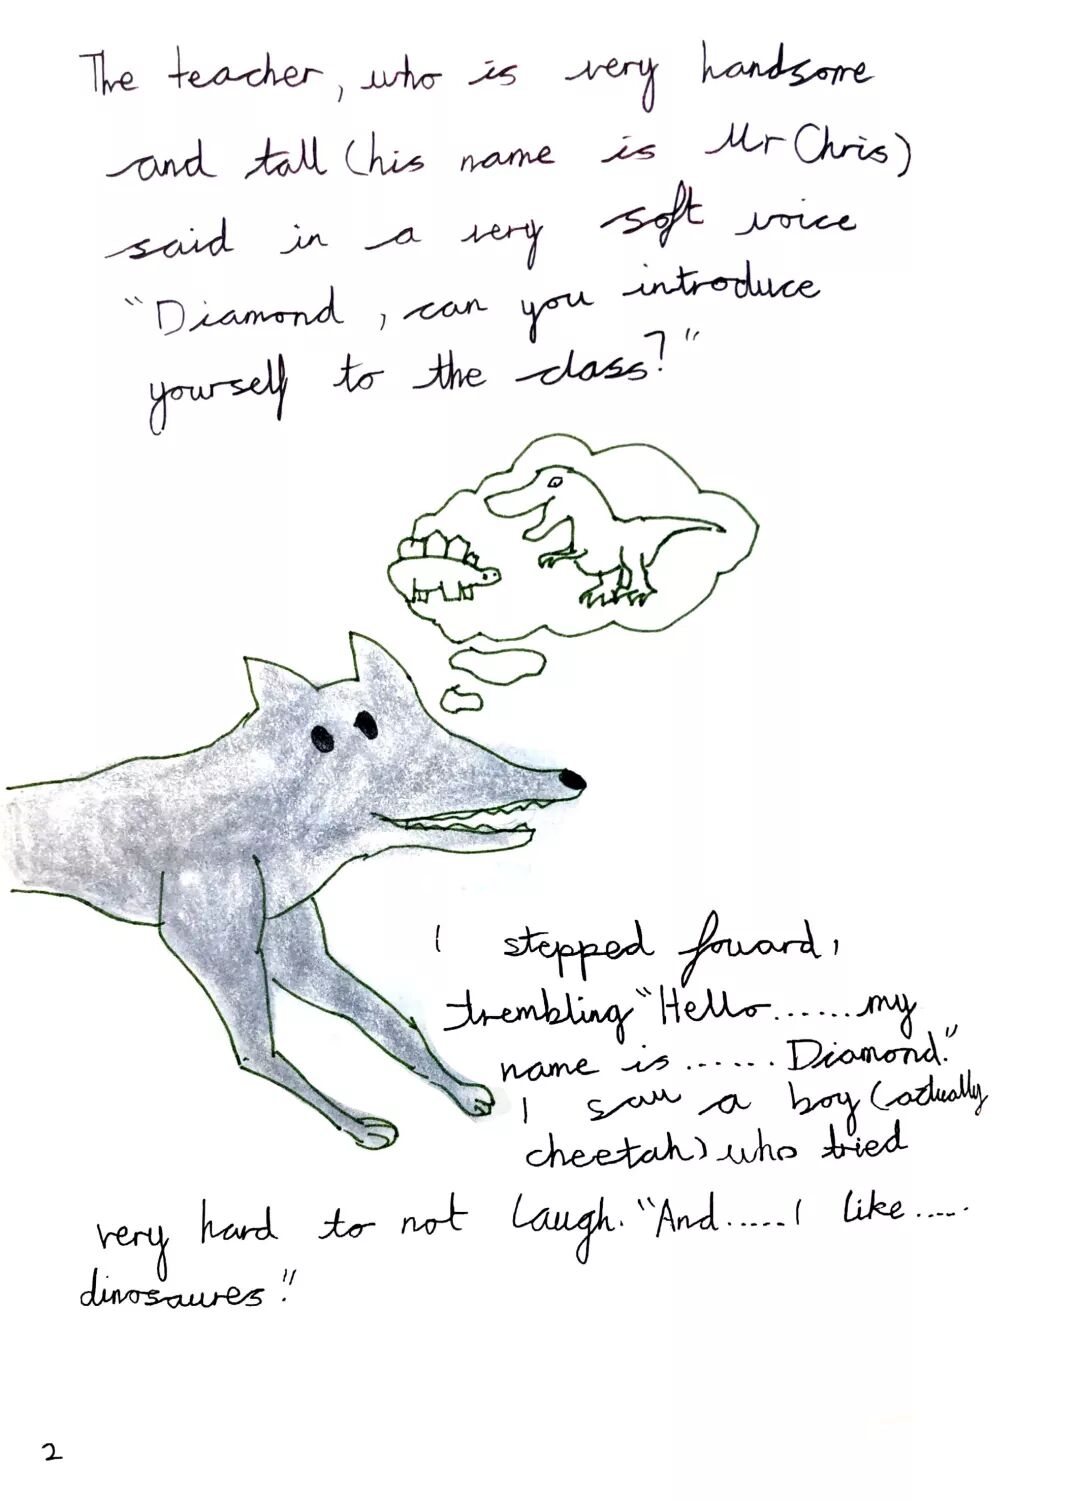 The teacher, who is very handsome
and tall (his name is Mr Chris)
said in a very soft voice
"Diamond, can you introduce
yourself to the class?"
I stepped foward,
trembling "Hello......my
name is ...... Diamond."
I saw a boy (actually
cheetah) who tried
very hard to not laugh. "And.....I like.....
dinosaures."
2